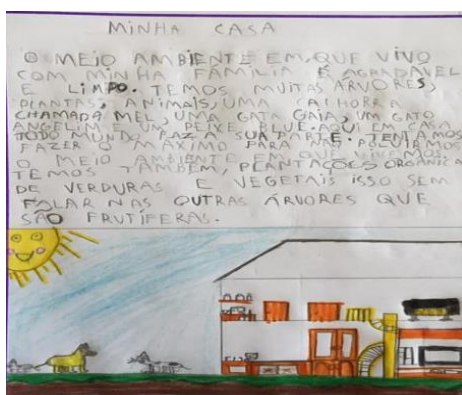 MINHA CASA
O MEIO AMBIENTE EM QUE VIVO
COM MINHA FAMÍLIA É AGRADÁVEL
E LIMPO. TEMOS MUITAS ÁRVORES,
PLANTAS, ANIMAIS, UMA CACHORRA
CHAMADA MEL, UMA GATA GAIA, UM GATO
ANGELIM E UM PEIXE BLUE. AQUI EM CASA
TODO MUNDO FAZ SUA PARTE. TENTAMOS
FAZER O MÁXIMO PARA NÃO POLUIRMOS
O MEIO AMBIENTE EM QUE VIVEMOS
TEMOS TAMBÉM, PLANTAÇÕES ORGÂNICA
DE VERDURAS E VEGETAIS ISSO SEM
FALAR NAS OUTRAS ÁRVORES QUE
SÃO FRUTÍFERAS.